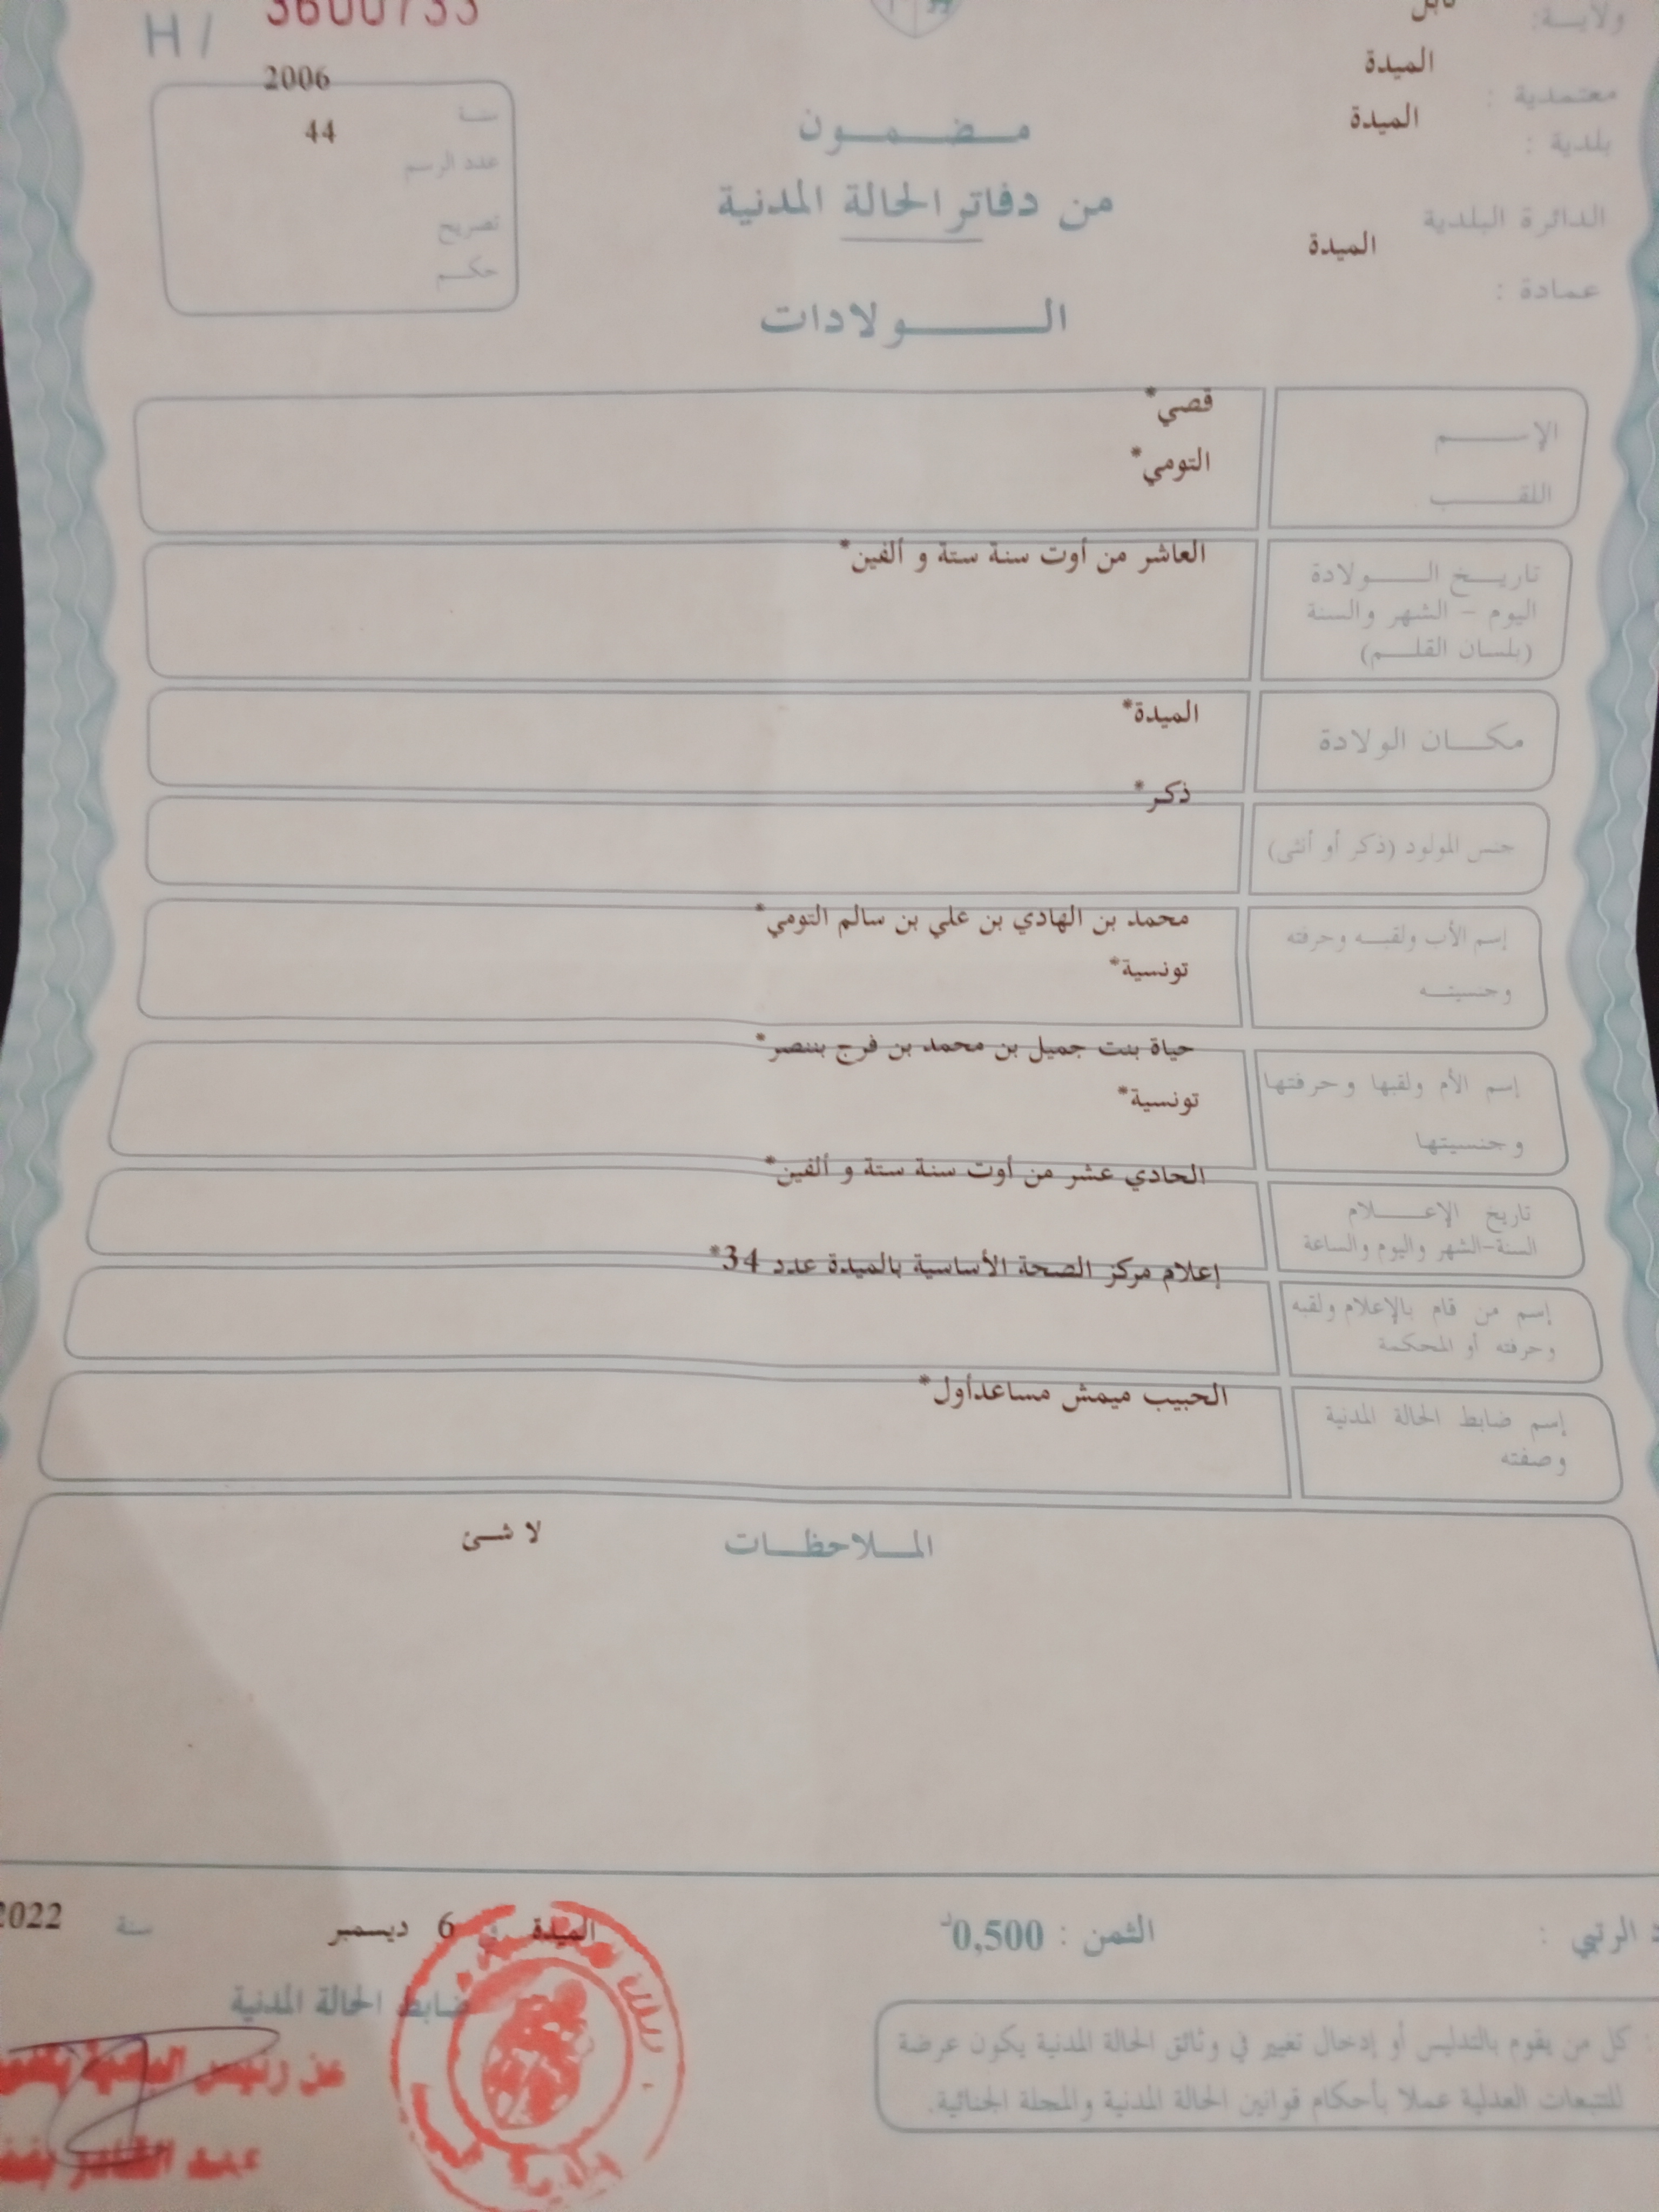 H / 3600733
ولايـــة: نابل
معتمدية : الميدة
بلدية : الميدة
الدائرة البلدية
عمادة : الميدة
سنة 2006
عدد الرسم 44
تصريح
حكـــم
مـــضـــمـــون
من دفاتر الحالة المدنية
الـــــولادات
الإســـــم قصي*
اللقـــــب التومي*
تاريـــخ الـــــولادة العاشر من أوت سنة ستة و ألفين*
اليوم – الشهر والسنة
(بلسان القلـــم)
مكـــان الولادة الميدة*
جنس المولود (ذكر أو أنثى) ذكر*
إسم الأب ولقبـــه وحرفته محمد بن الهادي بن علي بن سالم التومي*
وجنسيتـــه تونسية*
إسم الأم ولقبها وحرفتها حياة بنت جميل بن محمد بن فرج بننصر*
وجنسيتها تونسية*
تاريخ الإعـــــلام الحادي عشر من أوت سنة ستة و ألفين*
السنة–الشهر واليوم والساعة
إسم من قام بالإعلام ولقبه إعلام مركز الصحة الأساسية بالميدة عدد 34*
وحرفته أو المحكمة
إسم ضابط الحالة المدنية الحبيب ميمش مساعدأول*
وصفته
المـــلاحظـــات لا شئ
الرتبي :
الثمن : 0,500د
الميدة في 6 ديسمبر سنة 2022
ضابط الحالة المدنية
عن رئيس البلدية
عبد القادر
: كل من يقوم بالتدليس أو إدخال تغيير في وثائق الحالة المدنية يكون عرضة
للتتبعات العدلية عملا بأحكام قوانين الحالة المدنية والمجلة الجنائية.